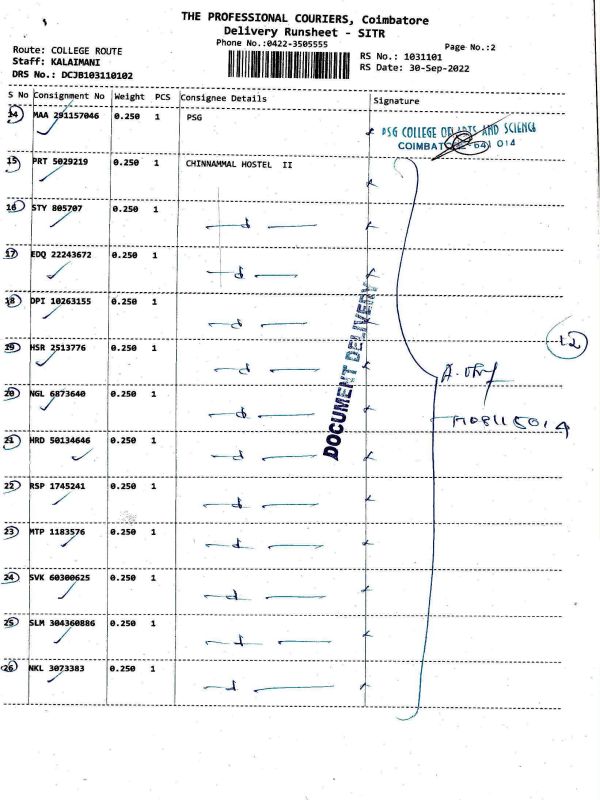 THE PROFESSIONAL COURIERS, Coimbatore
Delivery Runsheet - SITR
Phone No.:0422-3505555
Page No.:2
Route: COLLEGE ROUTE
RS No.: 1031101
Staff: KALAIMANI
RS Date: 30-Sep-2022
DRS No.: DCJB103110102
S No Consignment No Weight PCS Consignee Details Signature
14 MAA 291157046 0.250 1 PSG
PSG COLLEGE OF ARTS AND SCIENCE
COIMBATORE - 641 014
15 PRT 5029219 0.250 1 CHINNAMMAL HOSTEL II
16 STY 805707 0.250 1
17 EDQ 22243672 0.250 1
18 DPI 10263155 0.250 1
DOCUMENT DELIVERY
19 HSR 2513776 0.250 1
12
20 NGL 6873640 0.250 1
21 HRD 50134646 0.250 1
22 RSP 1745241 0.250 1
23 MTP 1183576 0.250 1
24 SVK 60300625 0.250 1
25 SLM 304360886 0.250 1
26 NKL 3073383 0.250 1